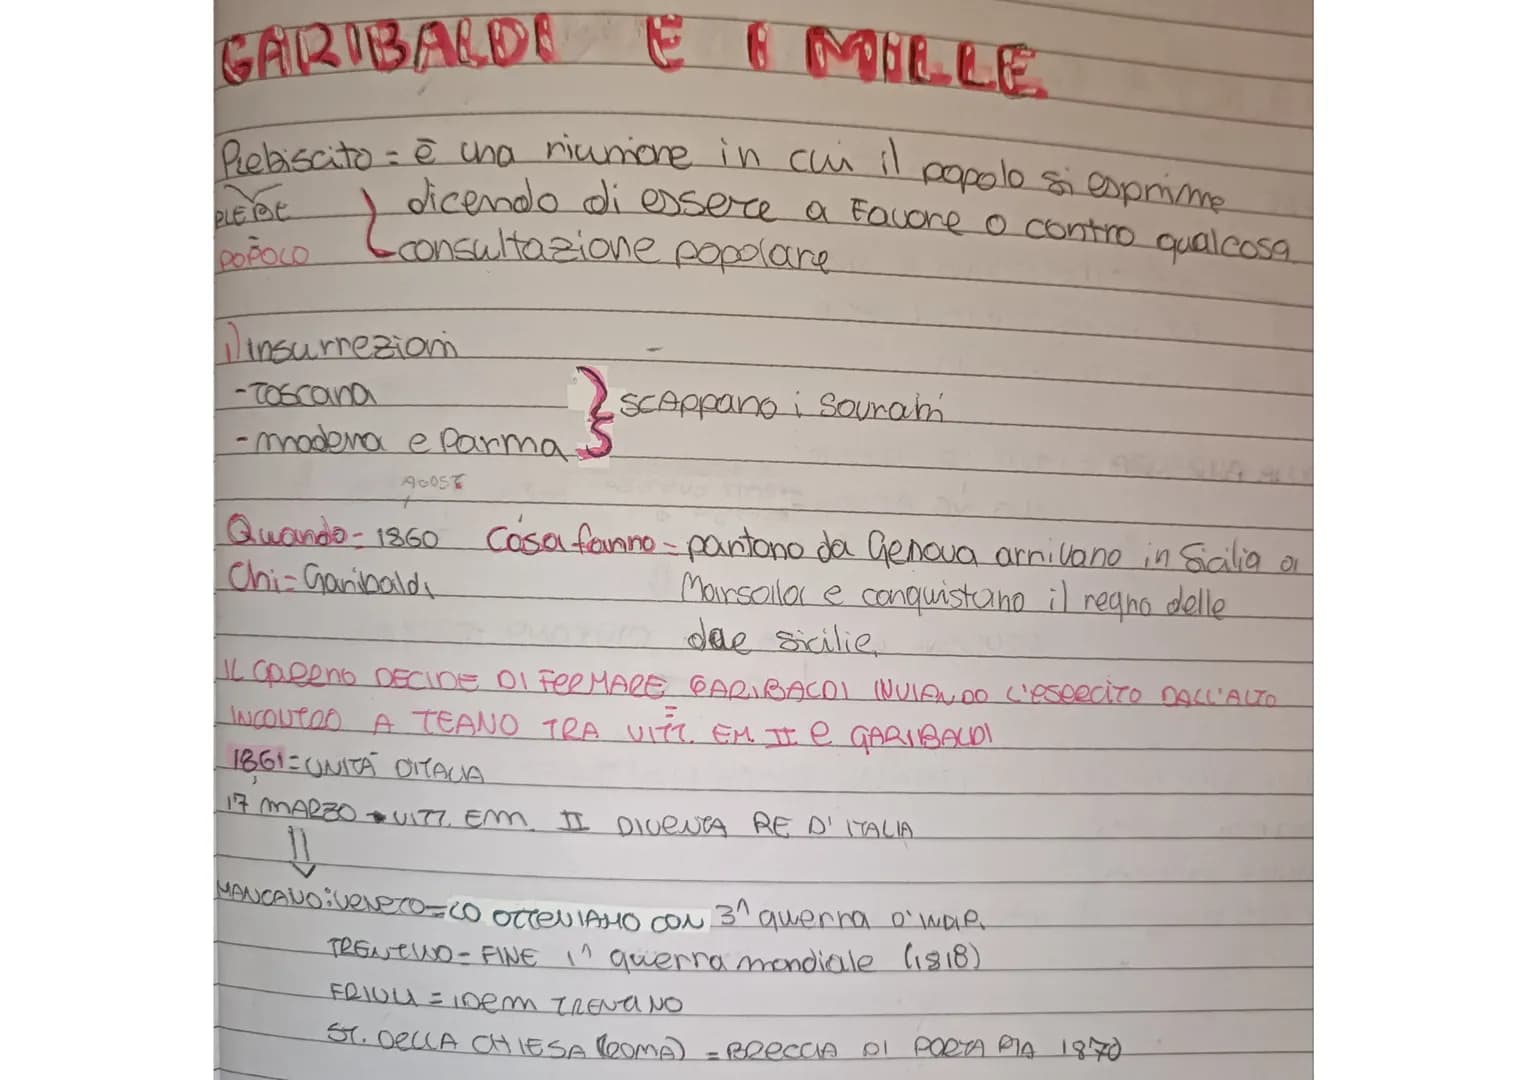 GARIBALDI E I MILLE
Plebiscito = è una riunione in cui il popolo si esprime
PLEBE dicendo di essere a favore o contro qualcosa
POPOLO consultazione popolare
1) insurrezioni
- Toscana
- modena e Parma } scappano i sovrani
Quando = 1860 Cosa fanno = partono da Genova arrivano in Sicilia a
Chi = Garibaldi Marsala e conquistano il regno delle
due sicilie.
IL GOVERNO DECIDE DI FERMARE GARIBALDI INVIANDO L'ESERCITO DALL'ALTO
INCONTRO A TEANO TRA VITT. EM. II e GARIBALDI
1861 = UNITÀ D'ITALIA
17 MARZO → VITT. EM. II DIVENTA RE D'ITALIA
MANCANO: VENETO = LO OTTENIAMO CON 3^ guerra d'indip.
TRENTINO = FINE 1^ guerra mondiale (1818)
FRIULI = IDEM TRENTINO
ST. DELLA CHIESA (ROMA) = BRECCIA DI PORTA PIA 1870